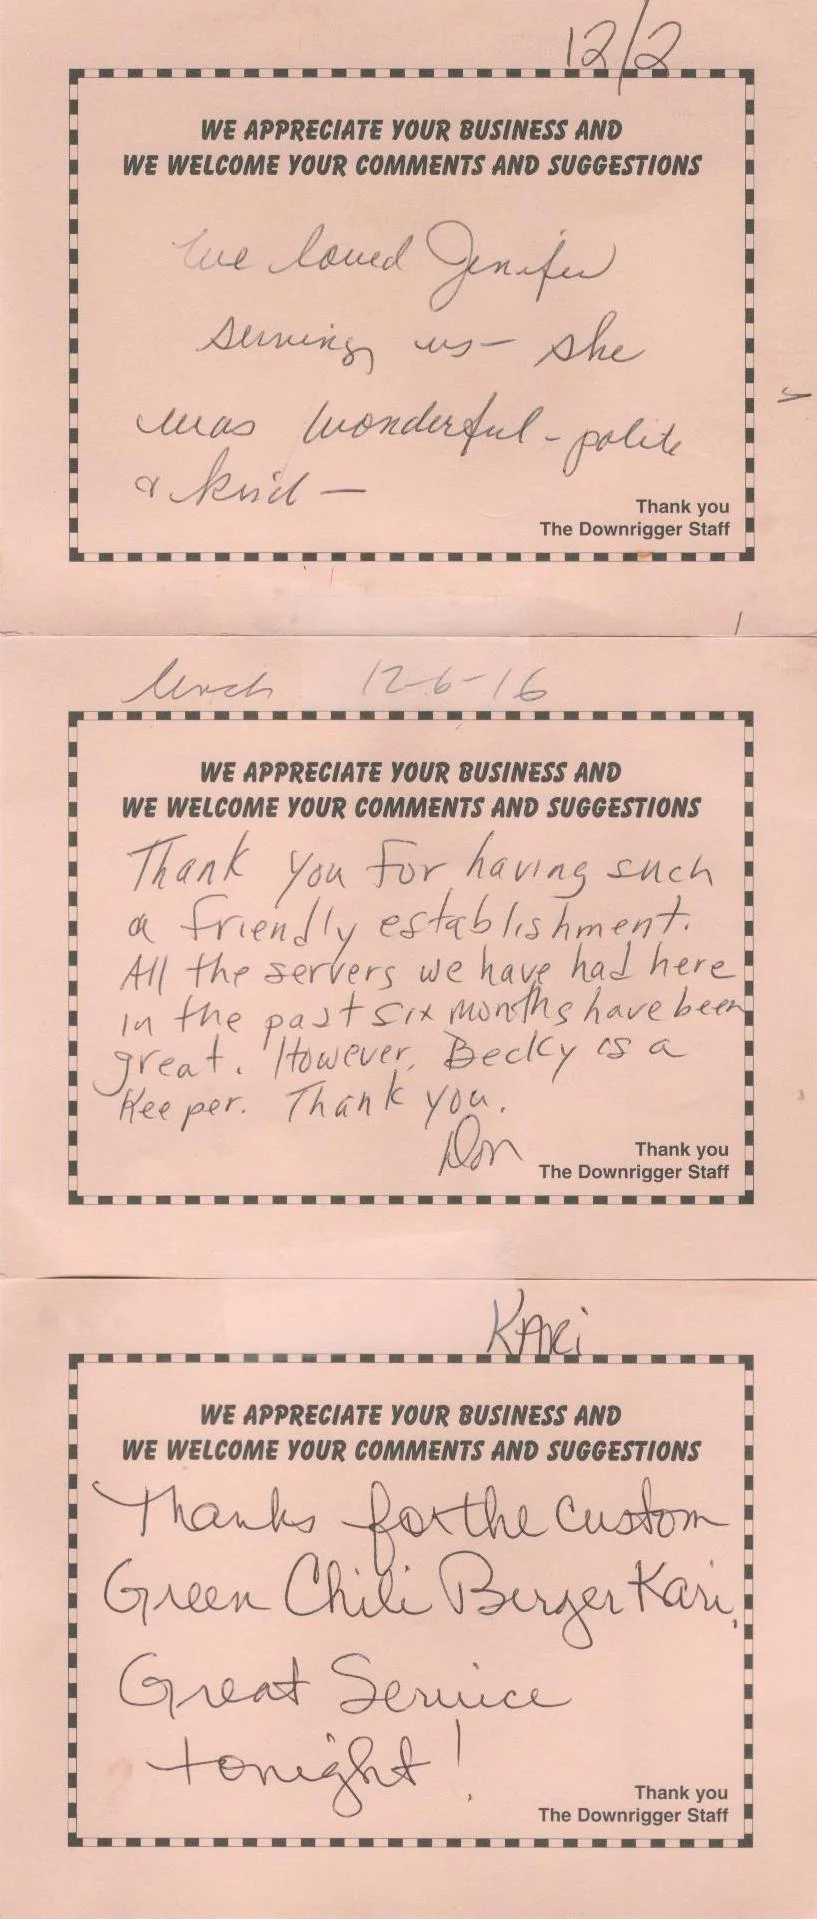 12/2
WE APPRECIATE YOUR BUSINESS AND
WE WELCOME YOUR COMMENTS AND SUGGESTIONS
We loved Jenifer
serving us - she
was wonderful - polite
& kind -
Thank you
The Downrigger Staff
lunch 12-6-16
WE APPRECIATE YOUR BUSINESS AND
WE WELCOME YOUR COMMENTS AND SUGGESTIONS
Thank you for having such
a friendly establishment.
All the servers we have had here
in the past six months have been
great. However, Becky is a
Keeper. Thank you.
Don
Thank you
The Downrigger Staff
KARi
WE APPRECIATE YOUR BUSINESS AND
WE WELCOME YOUR COMMENTS AND SUGGESTIONS
Thanks for the custom
Green Chili Berger Kari,
Great Service
tonight!
Thank you
The Downrigger Staff